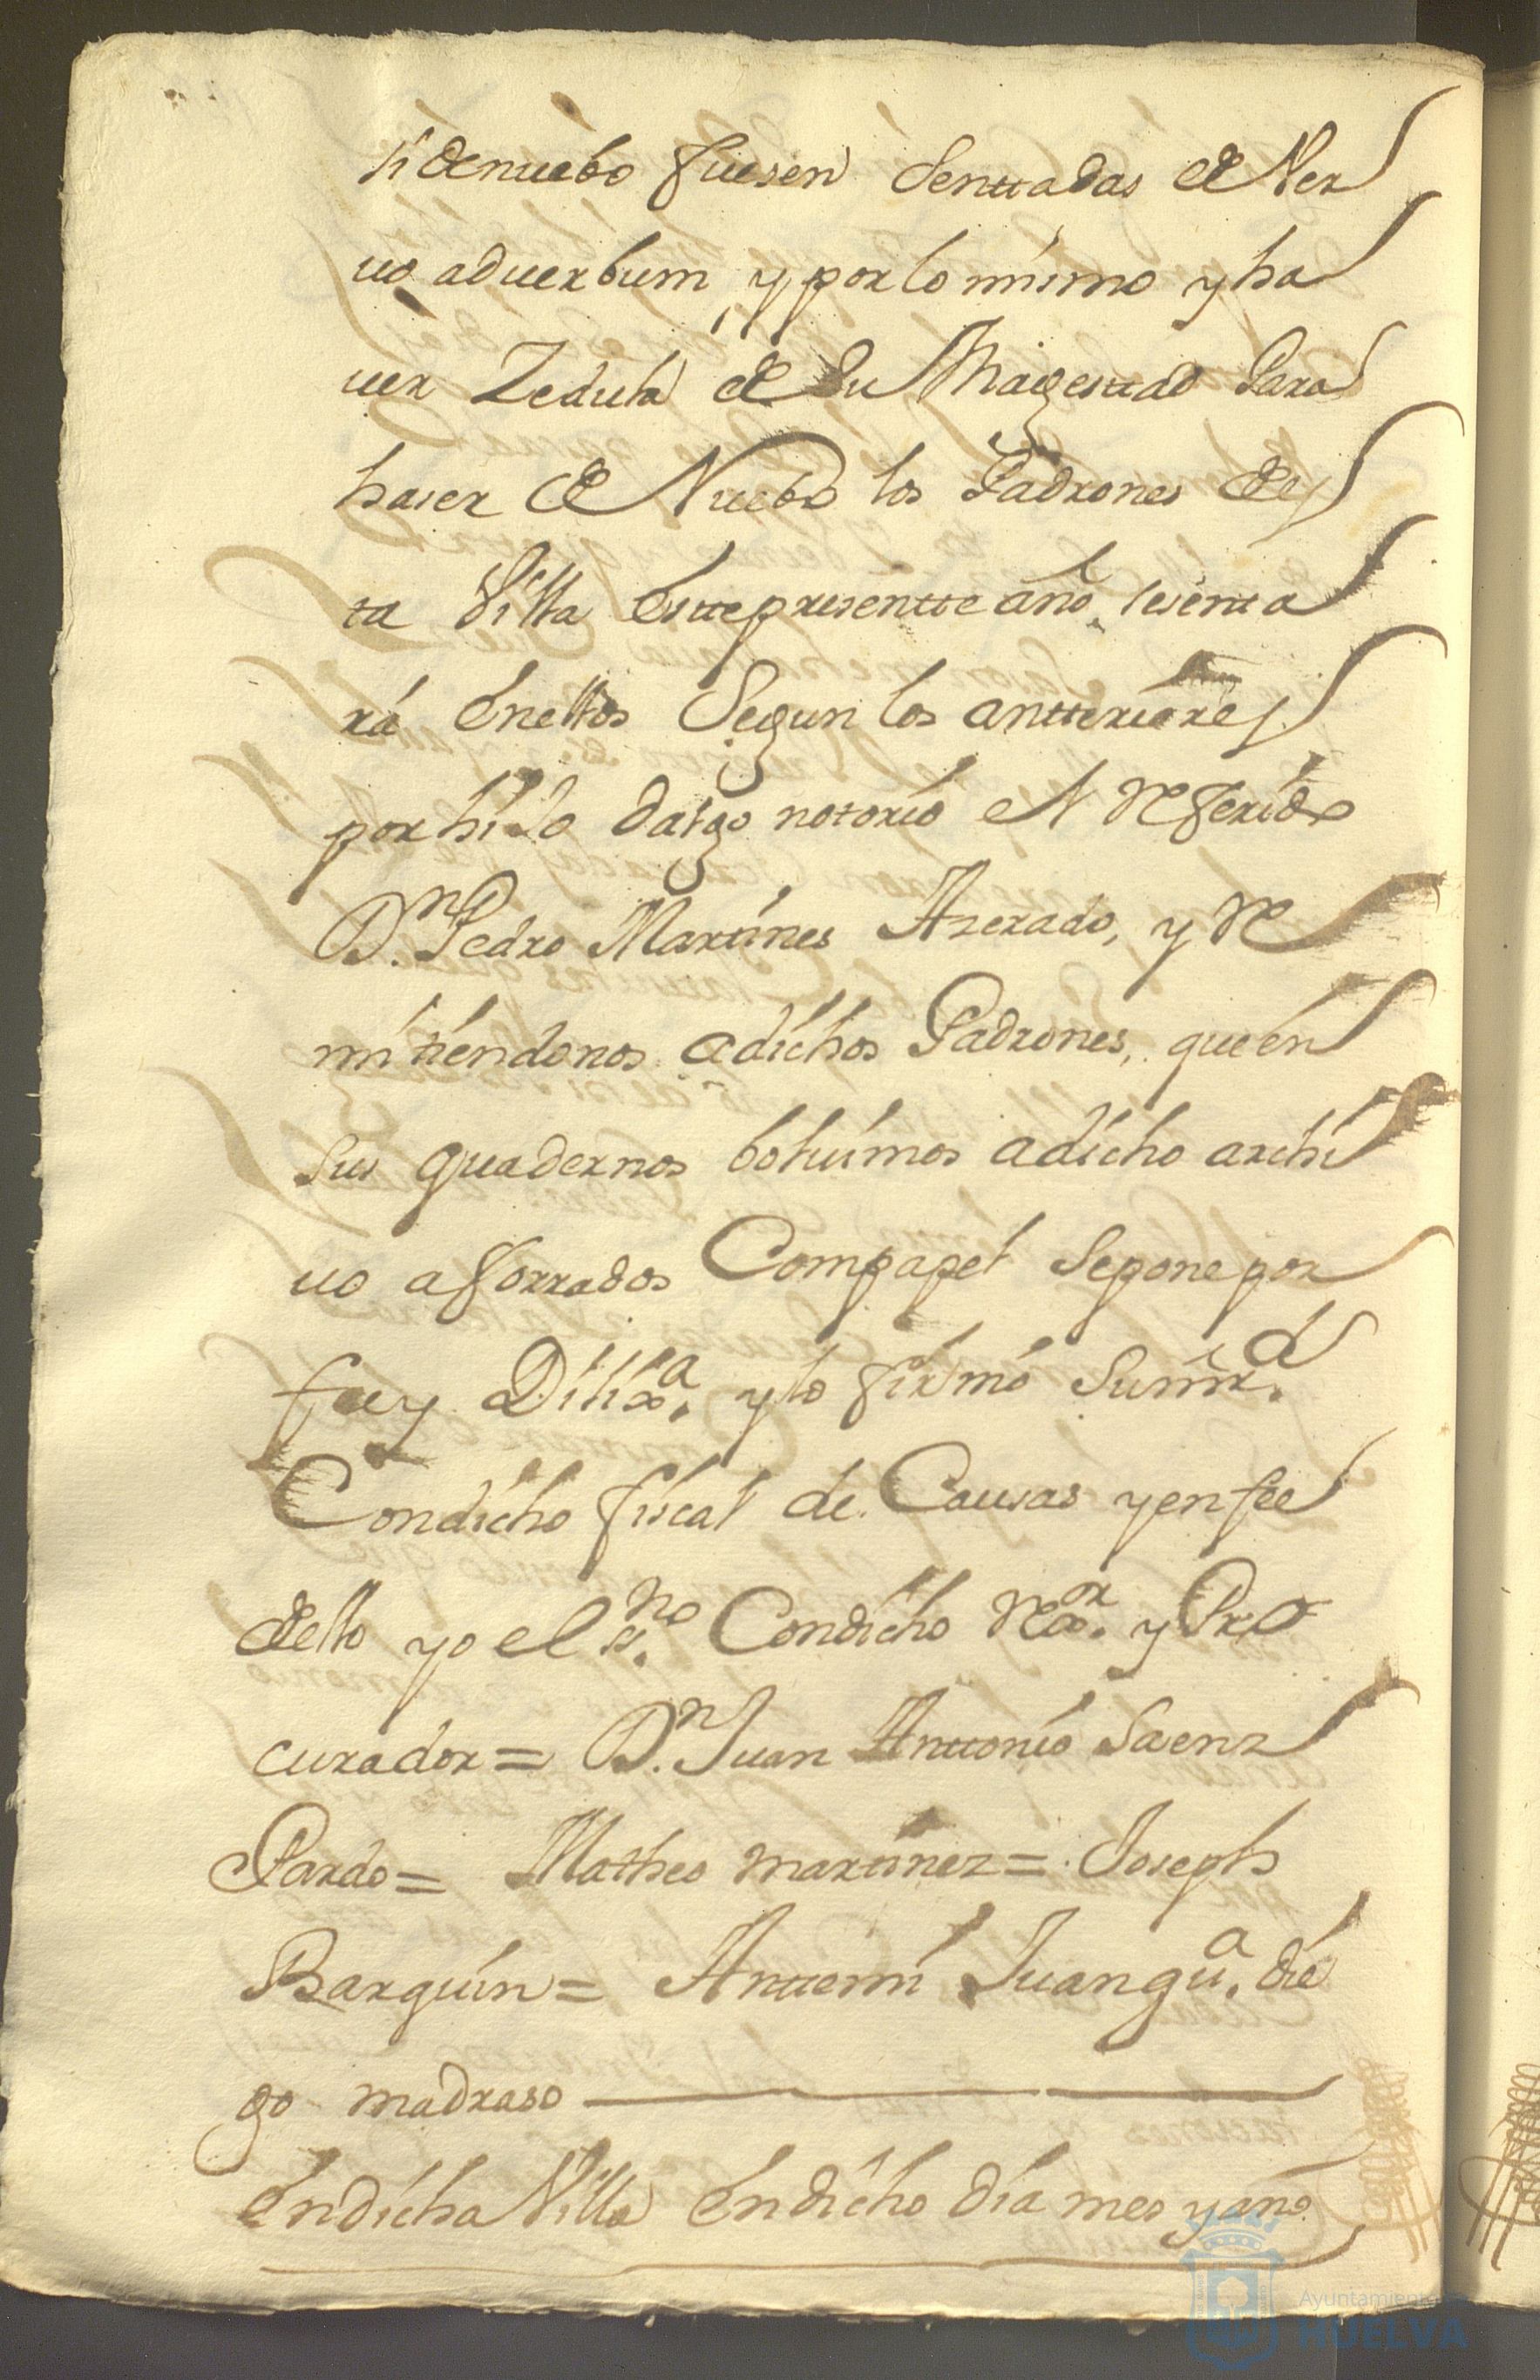 si denuebo fuesen senttadas de Ver
uo aduerbum, y por lo mismo y ha
uer Zedula de Su Magesttad Para
haser de Nuebo los Padrones des
ta Villa Estte presentte año, sesenta
rá Enellos Segun los antteriores
por hijo dalgo notorio el Referido
D.n Pedro Martines Azerado, y Re
mitiéndonos a dichos Padrones, que en
sus quadernos boluimos a dicho archi
uo aforrados Com papel Se pone por
fee y Dilix.a y lo firmó Su mr.d
Con dicho fiscal de Causas y en fee
dello yo el ss.no Con dicho Rex.or y Pro
curador = D.n Juan Anttonio Saenz
Pardo = Matheo martinez = Joseph
Barguin = Anttemi Juan gu.a die
go madraso
En dicha Villa En dicho dia mes y año
Ayuntamiento
HUELVA